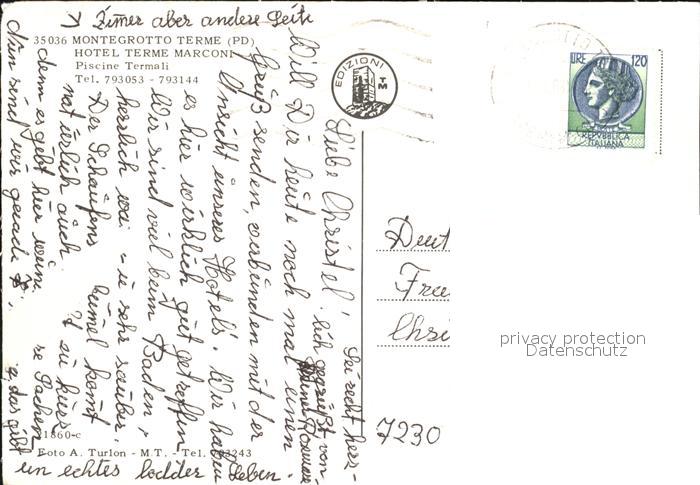 ↘ Zimer aber andere Seite
35036 MONTEGROTTO TERME (PD)
HOTEL TERME MARCONI
Piscine Termali
Tel. 793053 - 793144
EDIZIONI
TM
LIRE 120
REPVBBLICA
ITALIANA
Liebe Christel!
Will Dir heute noch mal einen
Gruß senden, verbunden mit der
Ansicht unseres Hotels. Wir haben
es hier wirklich gut getroffen
Wir sind viel beim Baden,
herrlich war sehr sauber.
Der Schaufens bummel kommt
natürlich auch zu kurz
denn es gibt hier Sachen
Nun sind wir gerade das gibt
ein echtes lodder Leben.
Sei recht herz-
lich gegrüßt von
Deut
Fre
Chri
7230
1860-c
Foto A. Turlon - M.T. - Tel. 793243
privacy protection
Datenschutz